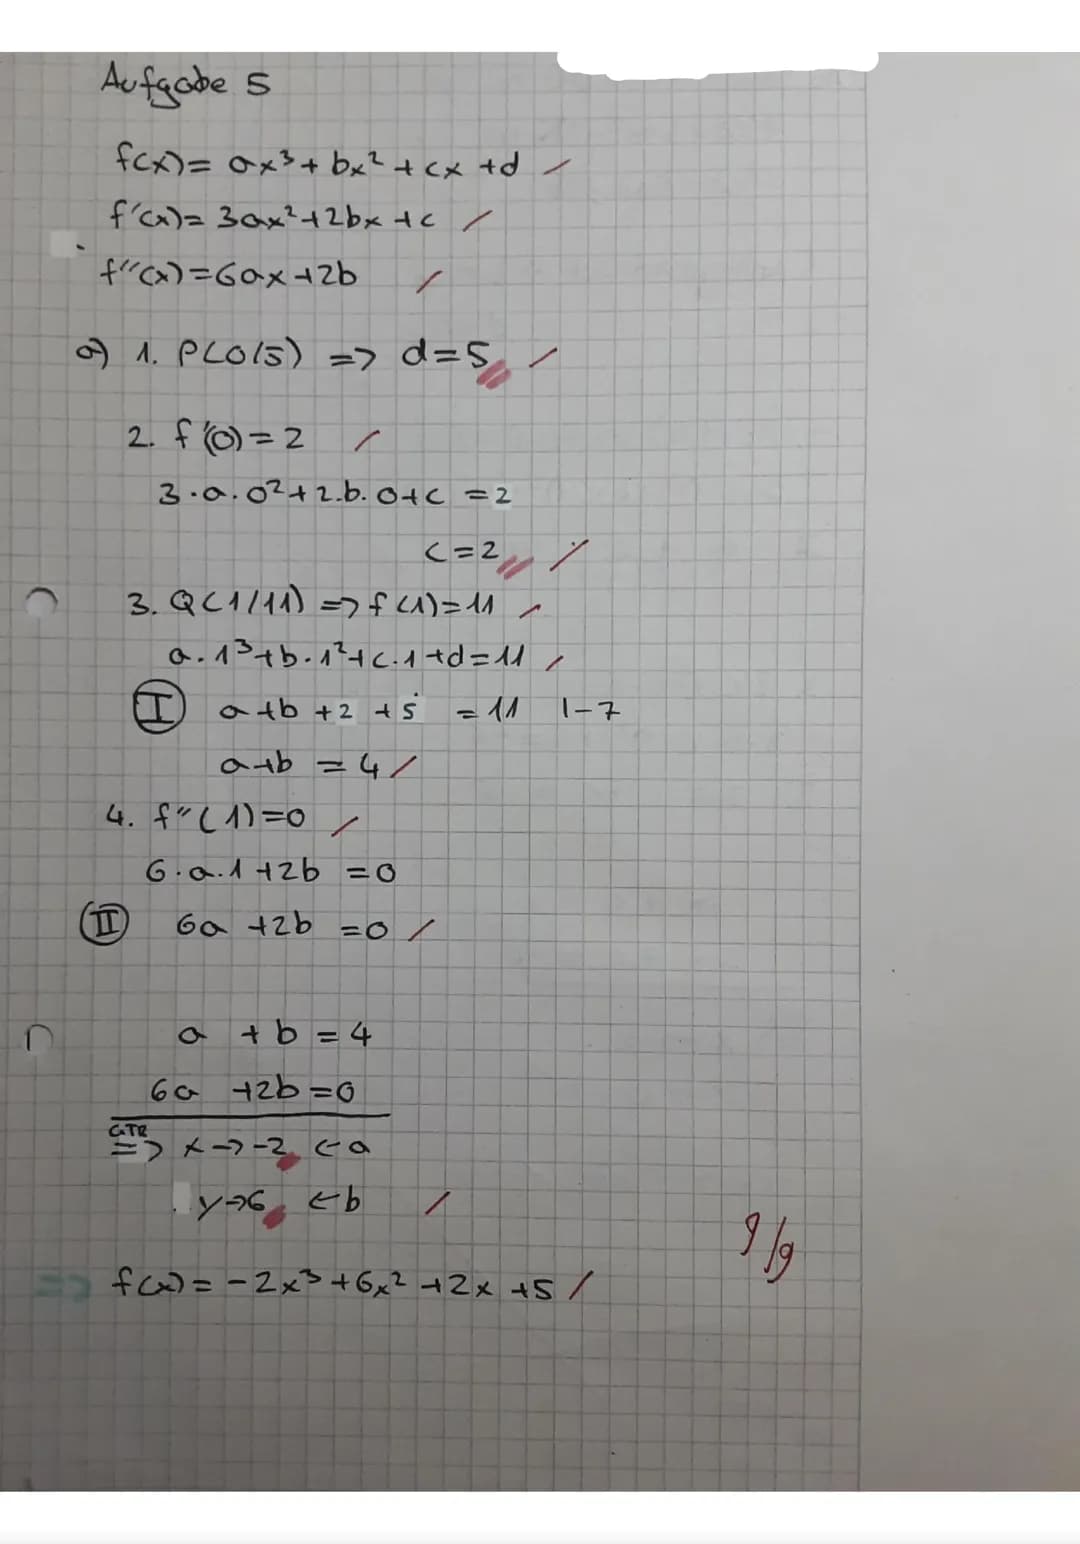 Aufgabe 5
f(x)= ax³+ bx² + cx +d
f'(x)= 3ax²+2bx +c
f''(x)=6ax+2b
a) 1. P(0/5) => d=5
2. f'(0)=2
3·a·0²+2·b·0+c =2
c=2
3. Q(1/11) => f(1)=11
a·1³+b·1²+c·1+d=11
I a+b +2 +5 =11 |-7
a+b =4
4. f''(1)=0
6·a·1+2b =0
II 6a +2b =0
a +b =4
6a +2b=0
GTR
=> x→-2 ←a
y→6 ←b
9/9
=> f(x)= -2x³+6x²+2x +5